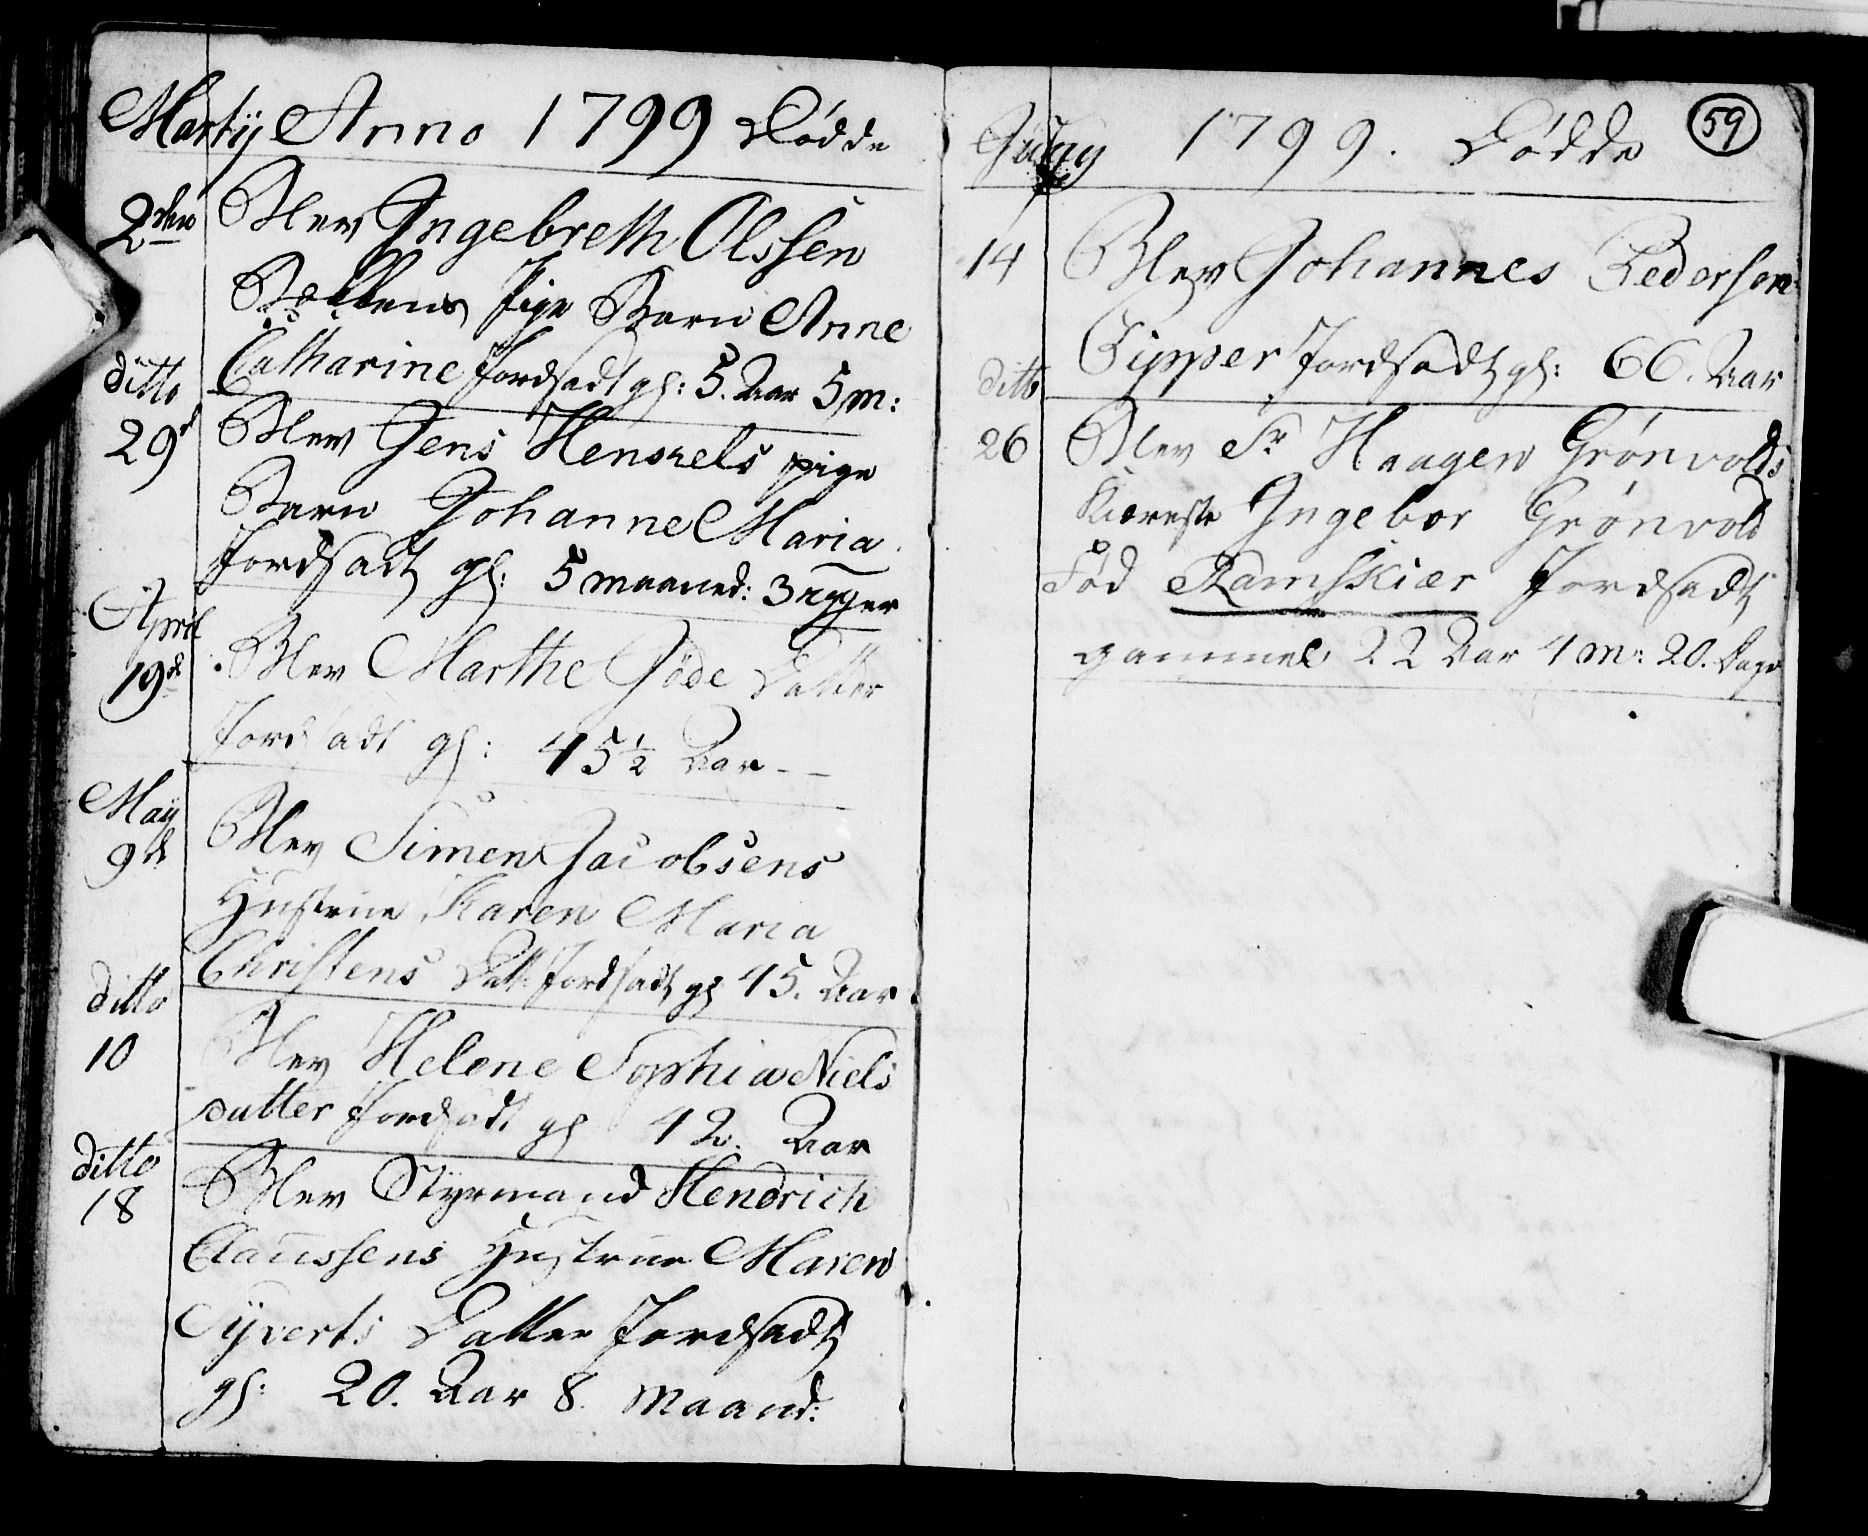 Martij Anno 1799 Dödde
2den Blev Ingebreth Olssen
Bakkens Pige Barn Anne
Catharine Jordsadt gl: 5. Aar 5 m:
ditto
29d Blev Jens Henszels pige
Barn Johanne Maria
Jordsadt gl: 5 maaned: 3 uger
April
19d Blev Marthe Göde Datter
Jordsadt gl: 45½ Aar - -
Maij
9d Blev Simen Jacobsens
Hustrue Karen Maria
Christens Datt: Jordsadt gl 45. Aar.
ditto
10 Blev Helene Sophia Niels
datter Jordsadt gl 42. Aar
ditto
18 Blev Styrmand Hendrich
Claussens Hustrue Maren
Syverts Datter Jordsadt
gl: 20. Aar 8. Maand:
1799. Dödde 59
14 Blev Johannes Pedersen
Zipper Jordsadt gl: 66. Aar
ditto
26 Blev Sr Haagen Grönvolds
Kiæreste Ingebor Grönvold
Född Ramskiær Jordsadt
gammel 22 Aar 4 m: 20. Dage